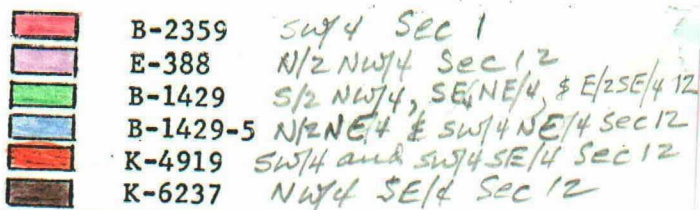 B-2359 SW/4 Sec 1
E-388 N/2 NW/4 Sec 12
B-1429 S/2 NW/4, SE/NE/4, & E/2SE/4 12
B-1429-5 N/2NE/4 & SW/4 NE/4 Sec 12
K-4919 SW/4 and SW/4 SE/4 Sec 12
K-6237 NW/4 SE/4 Sec 12